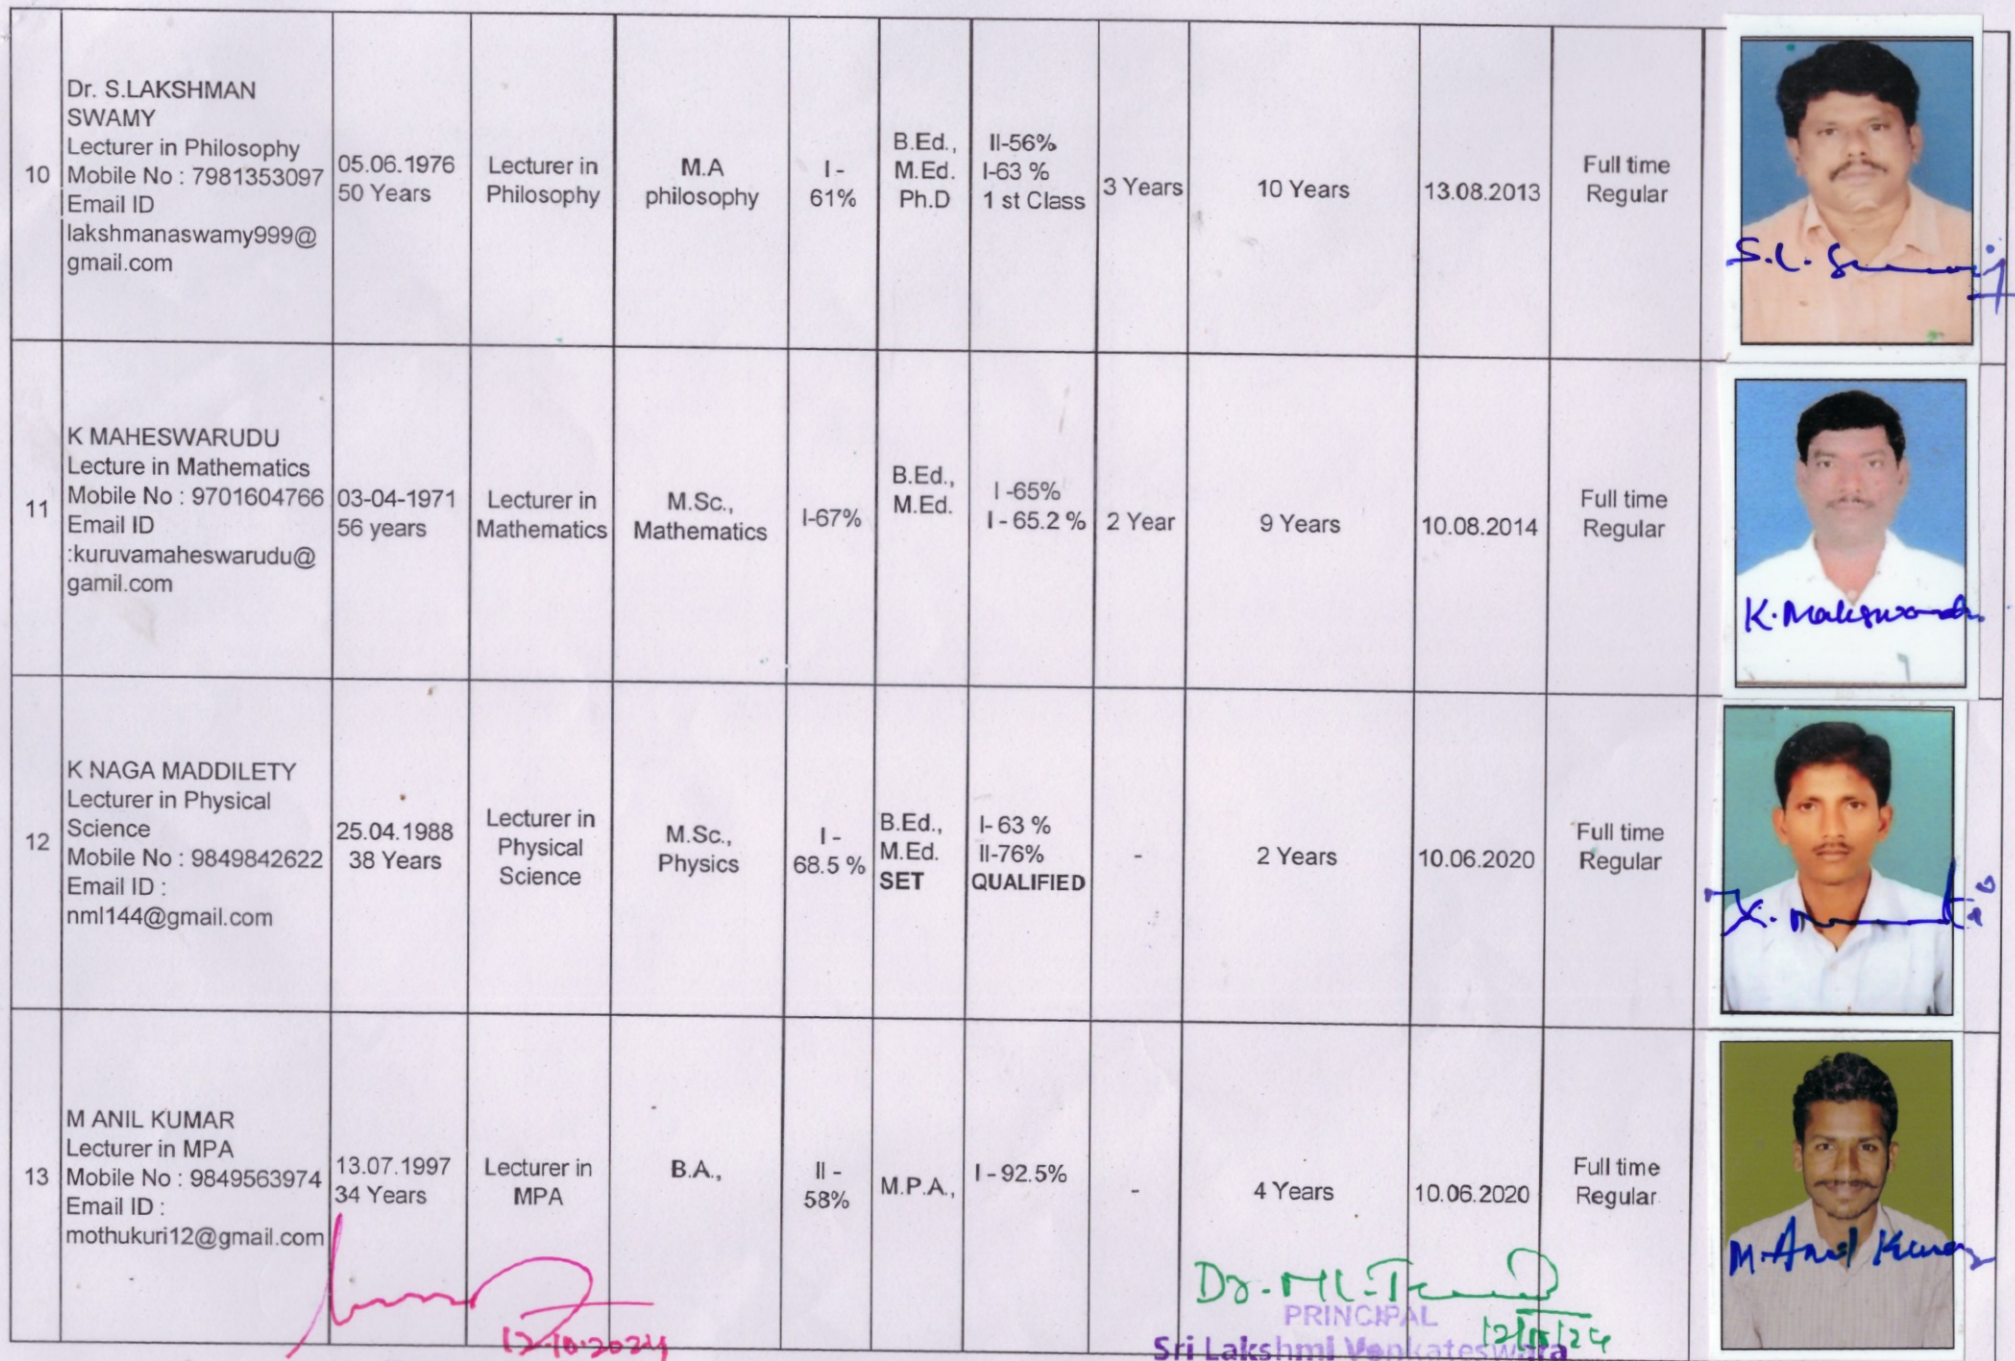 10
Dr. S.LAKSHMAN
SWAMY
Lecturer in Philosophy
Mobile No : 7981353097
Email ID
lakshmanaswamy999@
gmail.com
05.06.1976
50 Years
Lecturer in
Philosophy
M.A
philosophy
I -
61%
B.Ed.,
M.Ed.
Ph.D
II-56%
I-63 %
1 st Class
3 Years
10 Years
13.08.2013
Full time
Regular
S.L.
11
K MAHESWARUDU
Lecture in Mathematics
Mobile No : 9701604766
Email ID
:kuruvamaheswarudu@
gamil.com
03-04-1971
56 years
Lecturer in
Mathematics
M.Sc.,
Mathematics
I-67%
B.Ed.,
M.Ed.
I -65%
I - 65.2 %
2 Year
9 Years
10.08.2014
Full time
Regular
K.
12
K NAGA MADDILETY
Lecturer in Physical
Science
Mobile No : 9849842622
Email ID :
nml144@gmail.com
25.04.1988
38 Years
Lecturer in
Physical
Science
M.Sc.,
Physics
I -
68.5 %
B.Ed.,
M.Ed.
SET
I- 63 %
II-76%
QUALIFIED
-
2 Years
10.06.2020
Full time
Regular
K.
13
M ANIL KUMAR
Lecturer in MPA
Mobile No : 9849563974
Email ID :
mothukuri12@gmail.com
13.07.1997
34 Years
Lecturer in
MPA
B.A.,
II -
58%
M.P.A.,
I - 92.5%
-
4 Years
10.06.2020
Full time
Regular
M.Anil Kumar
12.10.2024
PRINCIPAL
Sri Lakshmi Venkateswara